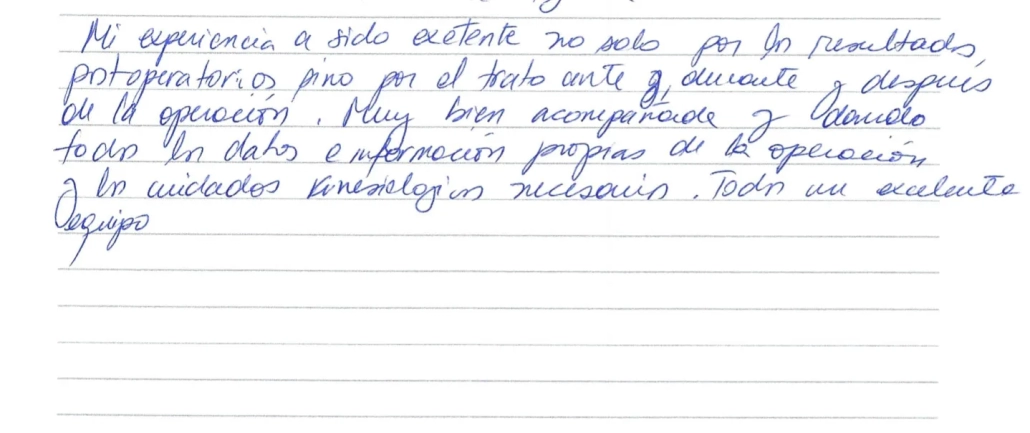 Mi experiencia a sido exelente no solo por los resultados
postoperatorios sino por el trato ante y, durante y después
de la operación. Muy bien acompañada y dando
todos los datos e información propias de la operación
y los cuidados kinesiologicos necesarios. Todos un excelente
equipo